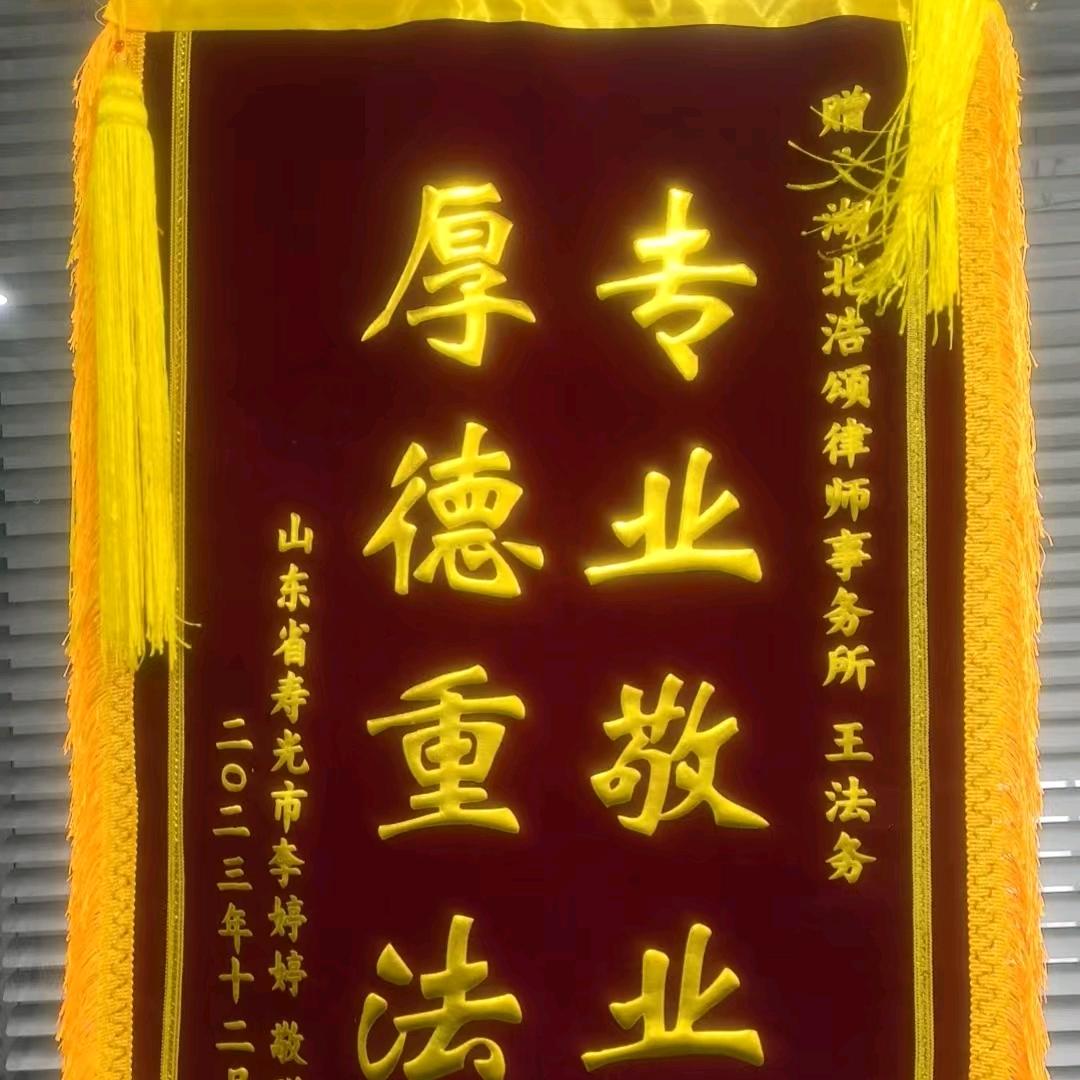 赠义湖北浩颂律师事务所 王法务
专业敬业
厚德重法
山东省寿光市李婷婷 敬
二〇二三年十二月